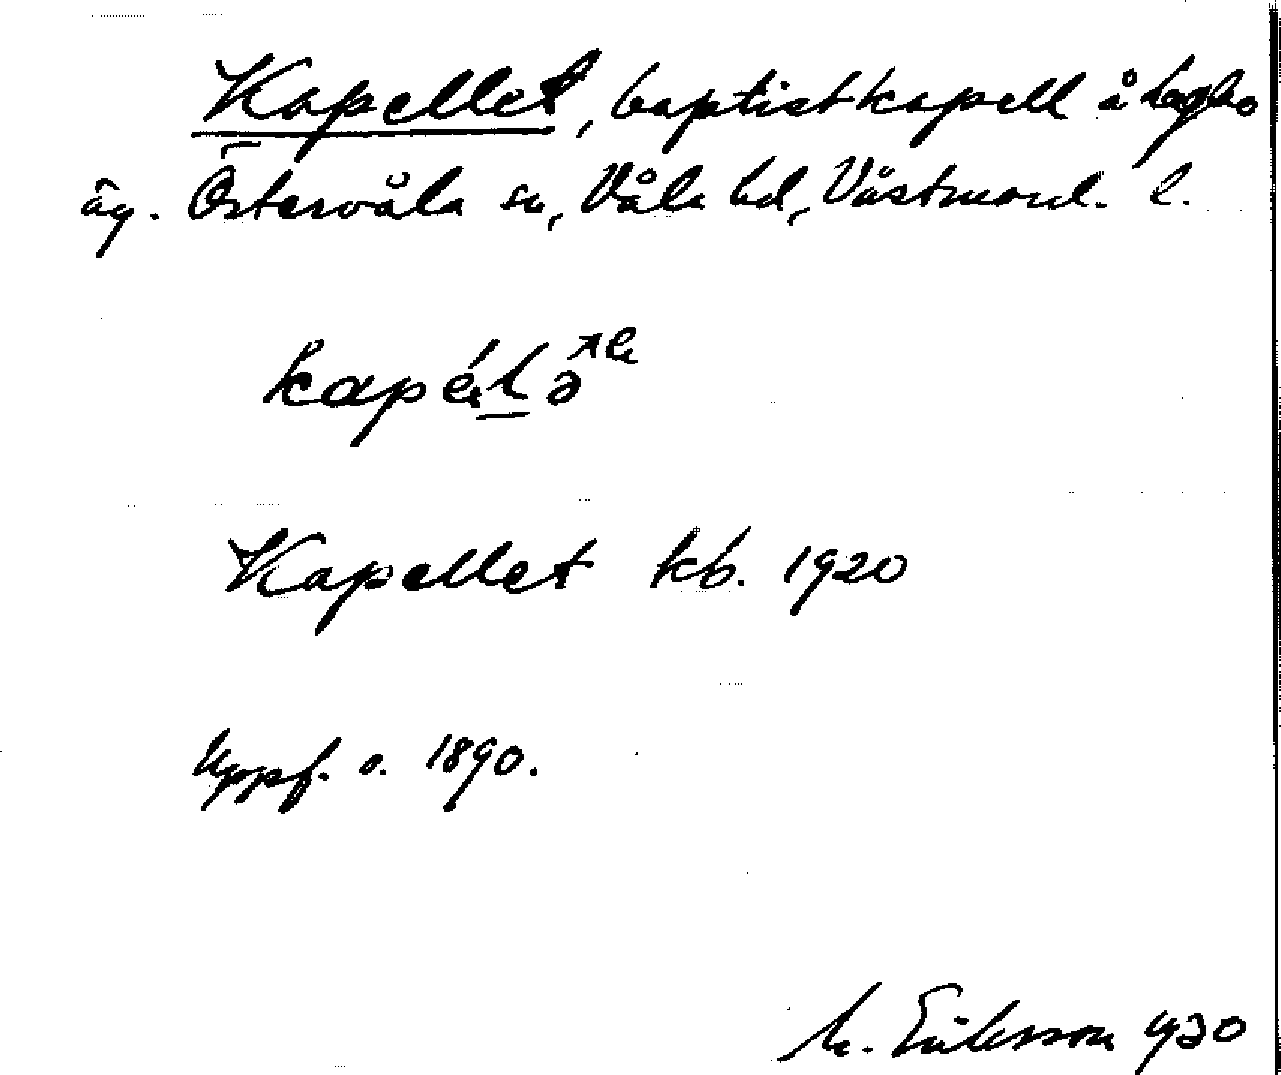 Kapellet, baptistkapell å
äg. Östervåla sn, Våla hd, Västmanl. l.
Kapellet kb. 1920
Uppf. o. 1890.
M. Eriksson 1930